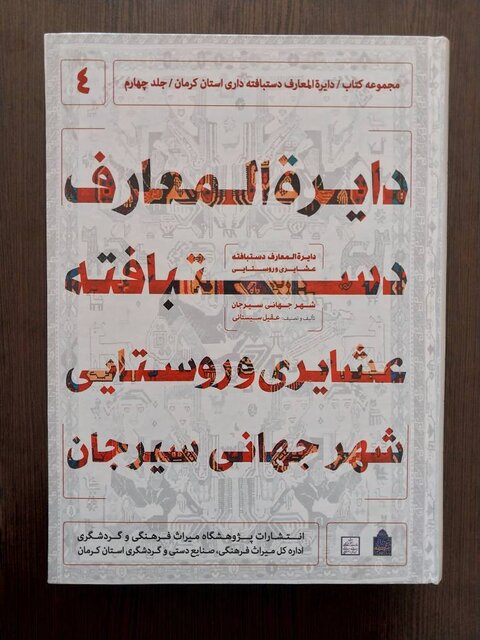 مجموعه کتاب / دایرة المعارف دستبافته داری استان کرمان / جلد چهارم
٤
دایرة المعارف
دستبافته
دایرة المعارف دستبافته
عشایری و روستایی
شهر جهانی سیرجان
تألیف و تصنیف: عقیل سیستانی
عشایری و روستایی
شهر جهانی سیرجان
انتشارات پژوهشگاه میراث فرهنگی و گردشگری
اداره کل میراث فرهنگی، صنایع دستی و گردشگری استان کرمان